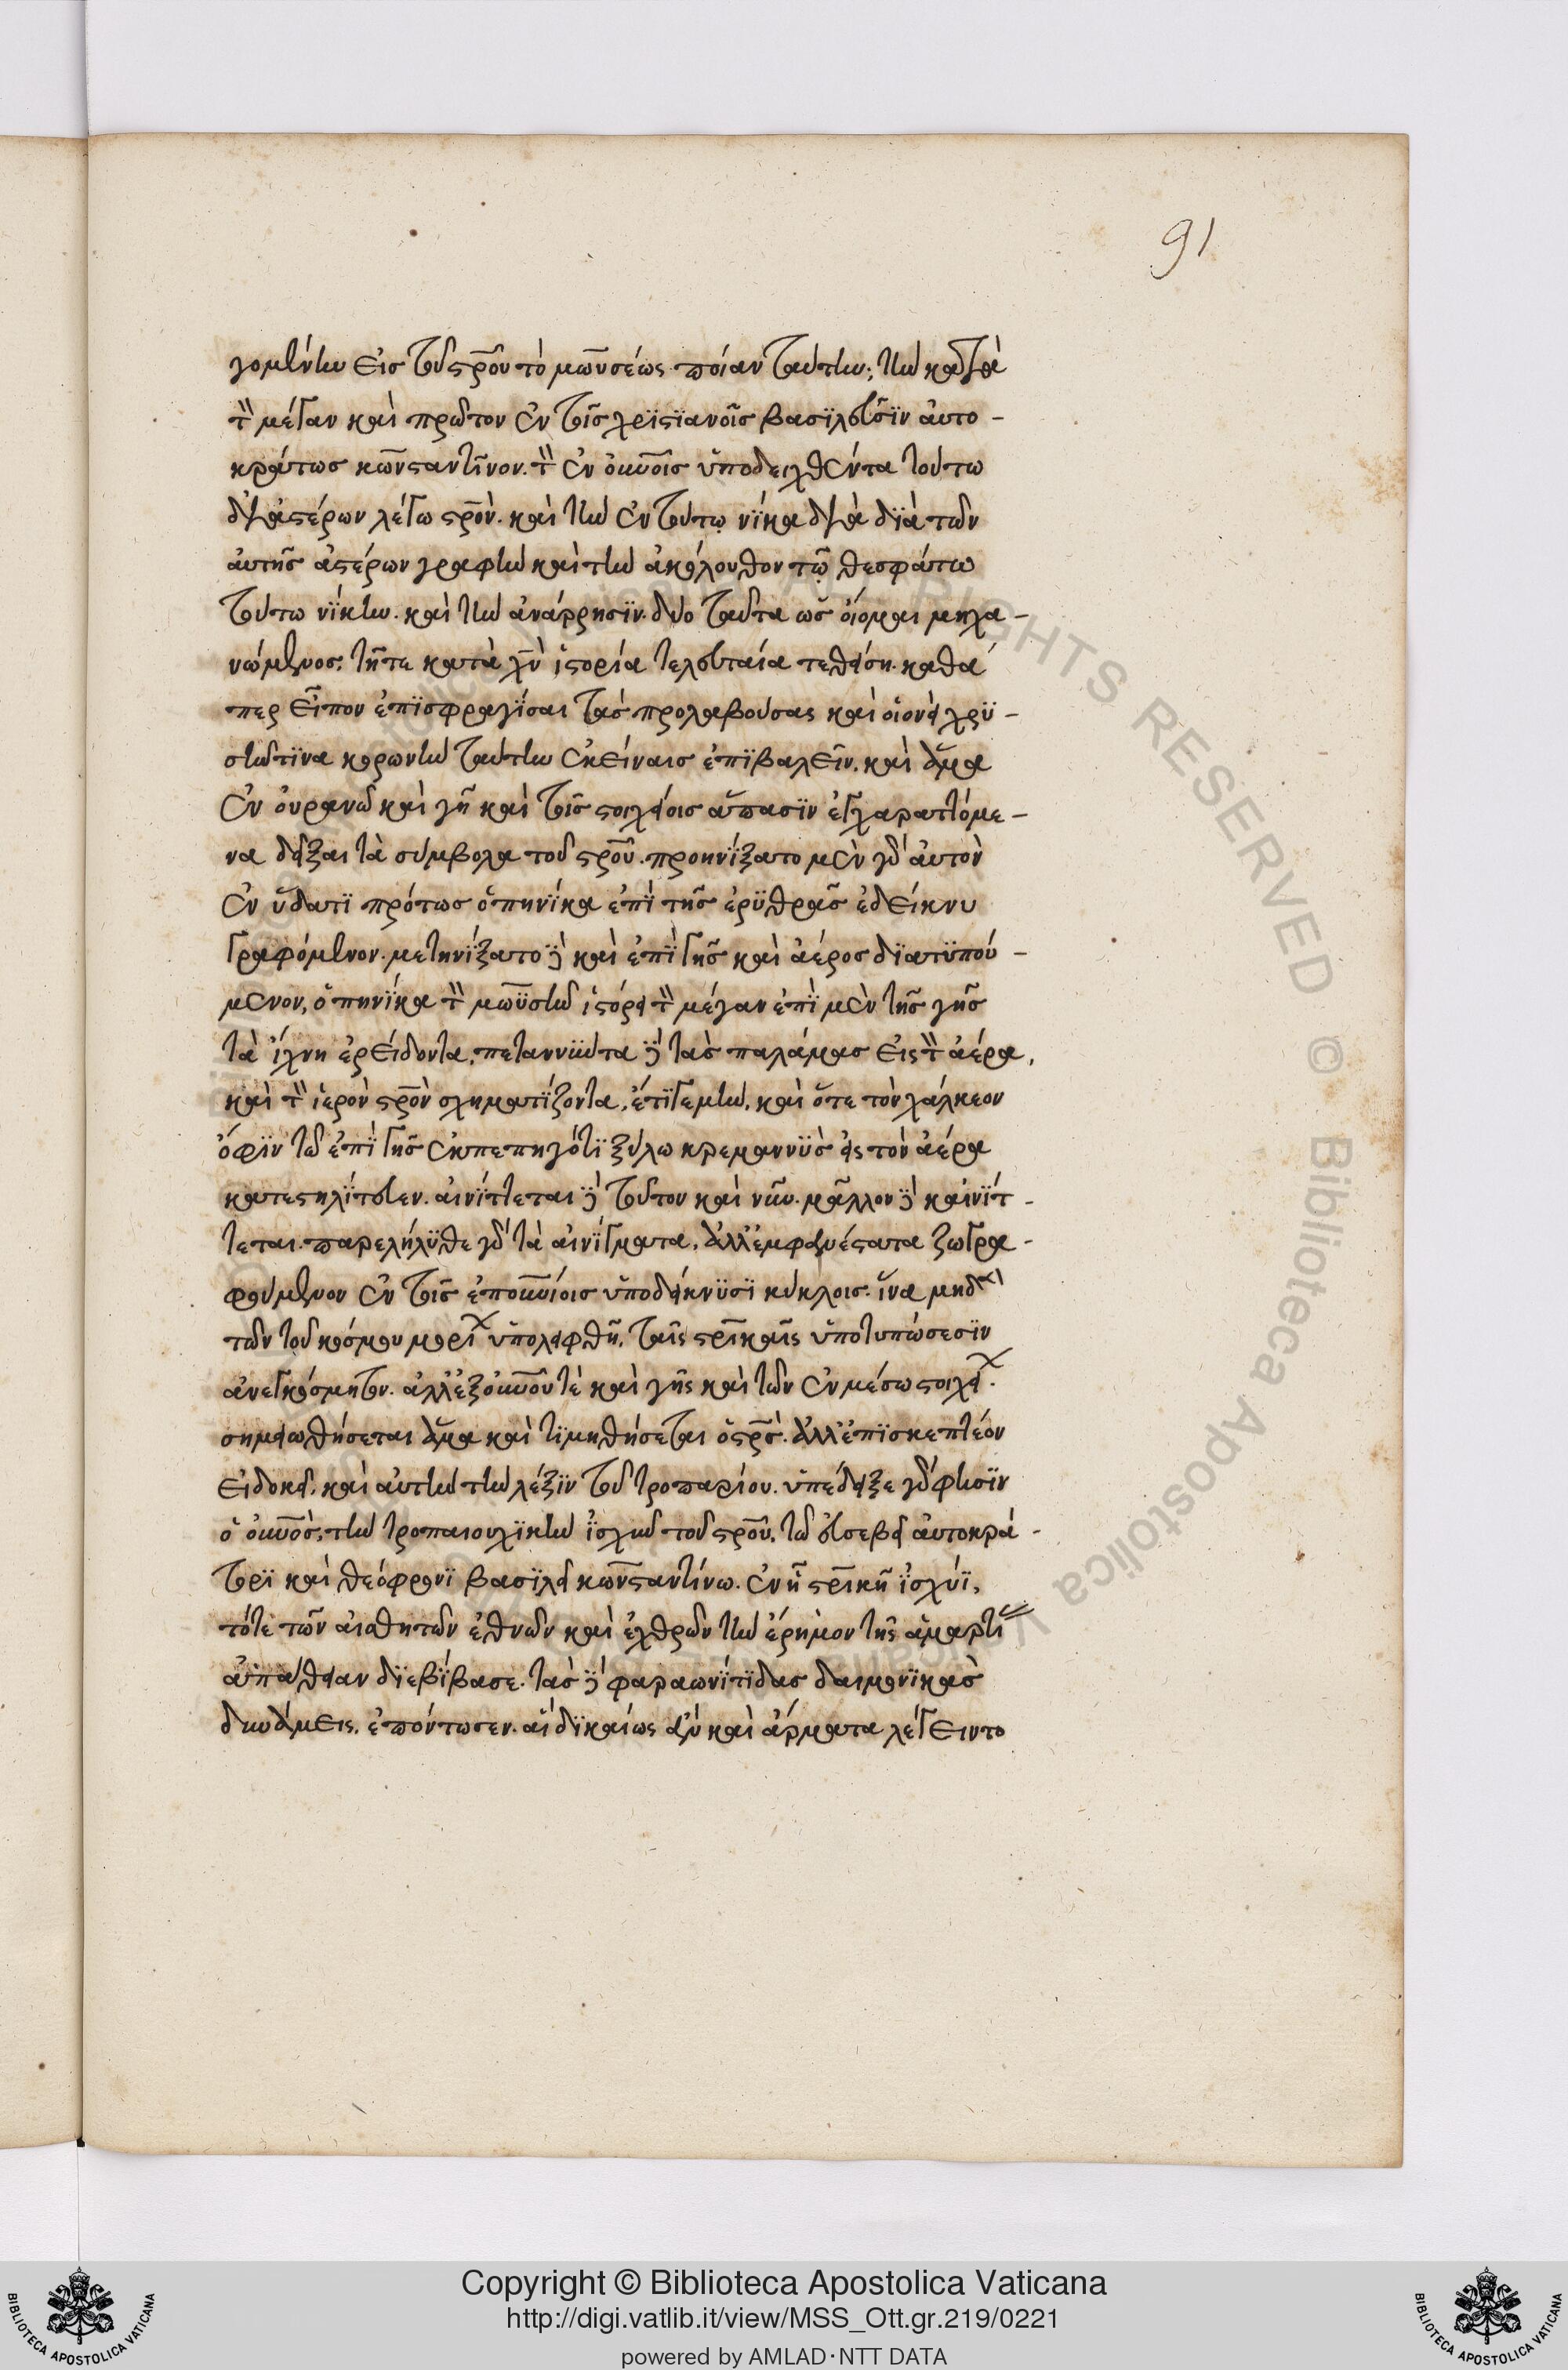 91
γομένην εἰς τοῦ σ̅ρ̅ο̅ῦ τὸ μωϋσέως ποίαν ταύτην; τὴν κατὰ
τ̏ μέγαν καὶ πρῶτον ἐν τοῖς χριστιανοῖς βασϊλεῦσϊν αὐτο-
κράτωσ κων̅σταντῖνον. τ̏ ἐν οὐνοῖς ὑποδειχθέντα τούτω
δι᾽ ἀστέρων λέγω σ̅ρ̅ὸν. καὶ τὴν ἐν τούτῳ νίκα διὰ δϊὰ τῶν
αὐτῆς ἀστέρων γραφὴν καὶ τὴν ἀκόλουθον τῷ θεσφάτω
τούτω νϊκην. καὶ τὴν ἀνάρρησϊν. δύο ταῦτα ὡς οἴομαι μηχα-
νώμενος; τῆτε κατὰ χ̅ν̅ ἱστορία τελευταία τεθείση. καθά
περ εἶπον ἐπϊσφραγίσαι τὰς προλαβούσας καὶ οἱονεὶ χρϋ-
σῆντϊνα κορωνὴν ταύτην ἐκείναις ἐπϊβαλεῖν. καὶ ἅμα
ἐν οὐρανῶ καὶ γῆ καὶ τοῖς στοιχείοις ἅπασϊν ἐγχαραττόμε-
να δεῖξαι τὰ σύμβολα τοῦ σ̅ρ̅οῦ. προηνίξατο μὲν γὰρ αὐτὸν
ἐν ὕδατϊ πρότως ὁπηνίκα ἐπὶ τῆς ἐρϋθρᾶς ἐδείκνυ
γραφόμενον. μετηνίξατο δὲ καὶ ἐπῒ γῆς καὶ ἀέρος δϊατϋπού-
μενον, ὁπηνίκα τ̏ μωϋσῆν ἱστόρει τ̏ μέγαν ἐπῒ μὲν τῆς γῆς
τὰ ἴχνη ἐρείδοντα, πεταννῦντα δὲ τὰς παλάμας εἰς τ̏ ἀέρα,
καὶ τ̏ ἱερὸν σ̅ρ̅ὸν σχηματίζοντα, ἔτϊγεμὴν, καὶ ὅτε τὸν χάλκεον
ὄφϊν τῶ ἐπῒ γῆς ἐκπεπηγότϊ ξύλω κρεμαννῢς εἰς τὸν ἀέρα
κατεστηλίτευεν. αἰνίττεται δὲ τοῦτον καὶ νῦν. μᾶλλον δὲ κʼαἰνίτ-
τεται. παρελήλϋθε γὰρ τὰ αἰνίγματα, ἀλλ᾽ ἐμφανέστατα ζωγρα-
φούμενον ἐν τοῖς ἐπουνίοις ὑποδείκνϋσϊ κύκλοις. ἵνα μηδὲν
τῶν τοῦ κόσμου μορί ὑπολειφθῆ, ταῖς σ̅ρ̅ϊκαῖς ὑποτυπώσεσϊν
ἀνεγκόσμητον. ἀλλ᾽ ἐξ οὐνοῦ τὲ καὶ γῆς καὶ τῶν ἐν μέσω στοιχεί.
σημειωθήσεται ἅμα καὶ τϊμηθήσεται ὁ σ̅ρ̅ὸς. ἀλλ᾽ ἐπϊσκεπτέον
εἰ δοκεῖ, καὶ αὐτὴν τὴν λέξϊν τοῦ τροπαρίου. ὑπέδειξε γάρ φησϊν
ὁ οὐνὸς, τὴν τροπαιουχϊκὴν ἰσχὺν τοῦ σ̅ρ̅οῦ, τῶ εὐσεβεῖ αὐτοκρά-
τορϊ καὶ θεόφρονϊ βασϊλεῖ κων̅σταντίνω. ἐν ἧ σ̅ρ̅ϊκῆ ἰσχύϊ,
τότε τῶν αἰσθητῶν ἐθνῶν καὶ ἐχθρῶν τὴν ἔρημον τῆς ἁμαρτί
ἀϋπάθειαν δϊεβίβασε. τὰς δὲ φαραωνίτϊδας δαιμονϊκὰς
δυνάμεις, ἐπόντωσεν. αἳ δϊκαίως ἂν καὶ ἅρματα λέγειντο
Copyright © Biblioteca Apostolica Vaticana
http://digi.vatlib.it/view/MSS_Ott.gr.219/0221
powered by AMLAD·NTT DATA